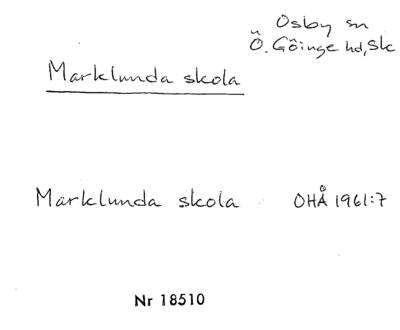 Osby sn
Ö. Göinge hd, Sk
Marklunda skola
Marklunda skola OHÅ 1961:7
Nr 18510